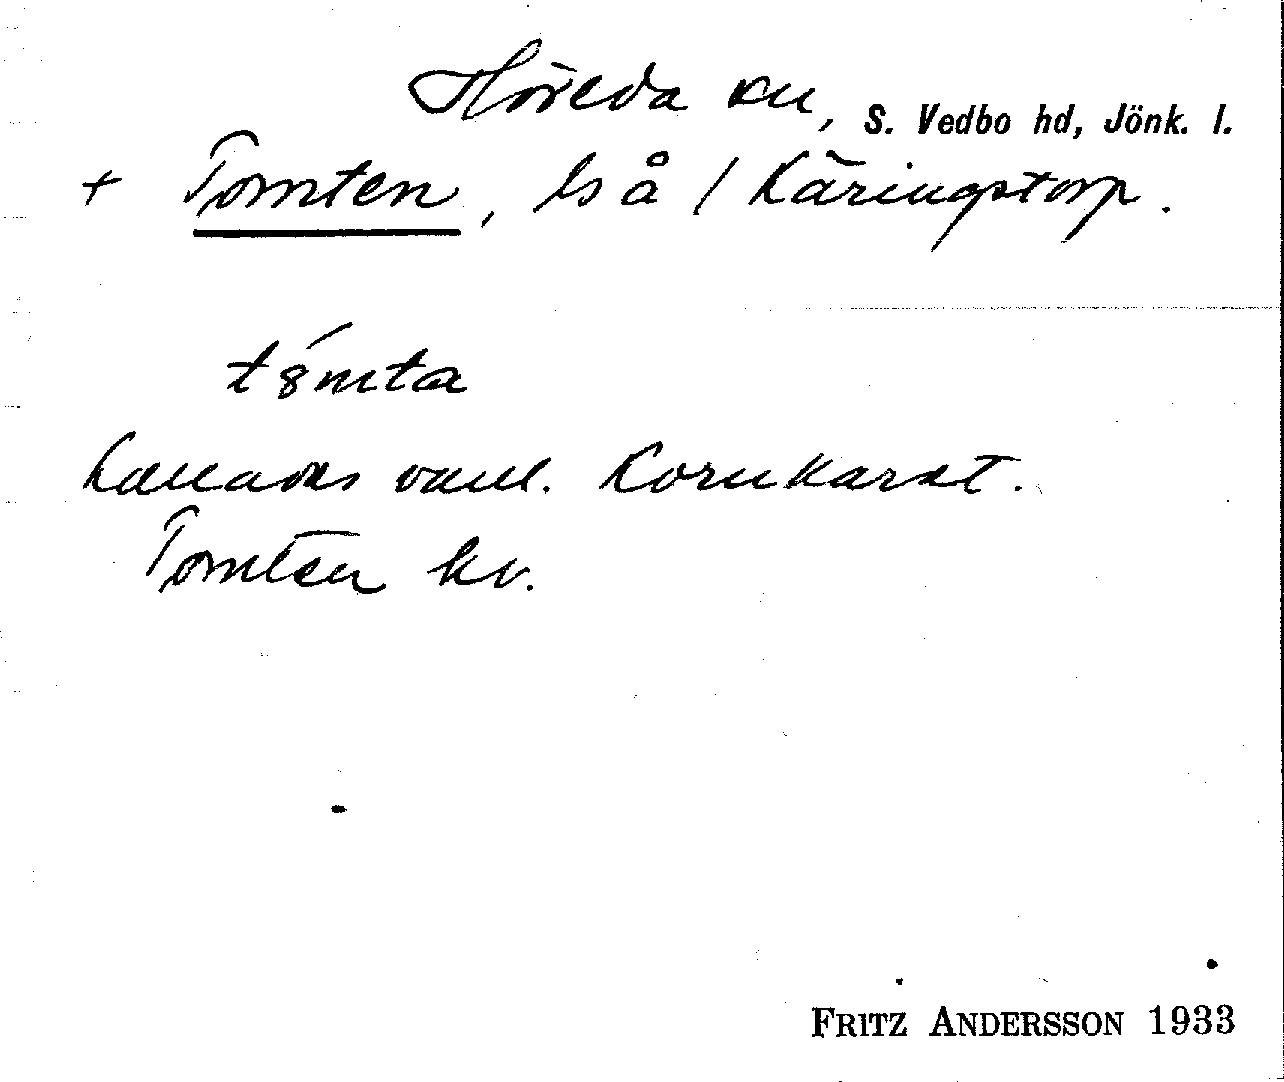 Höreda sn, S. Vedbo hd, Jönk. l.
+ Tomten, ls å / Käringstorp.
t8́mta
Kallades vanl. Kornkarst.
Tomten kv.
FRITZ ANDERSSON 1933